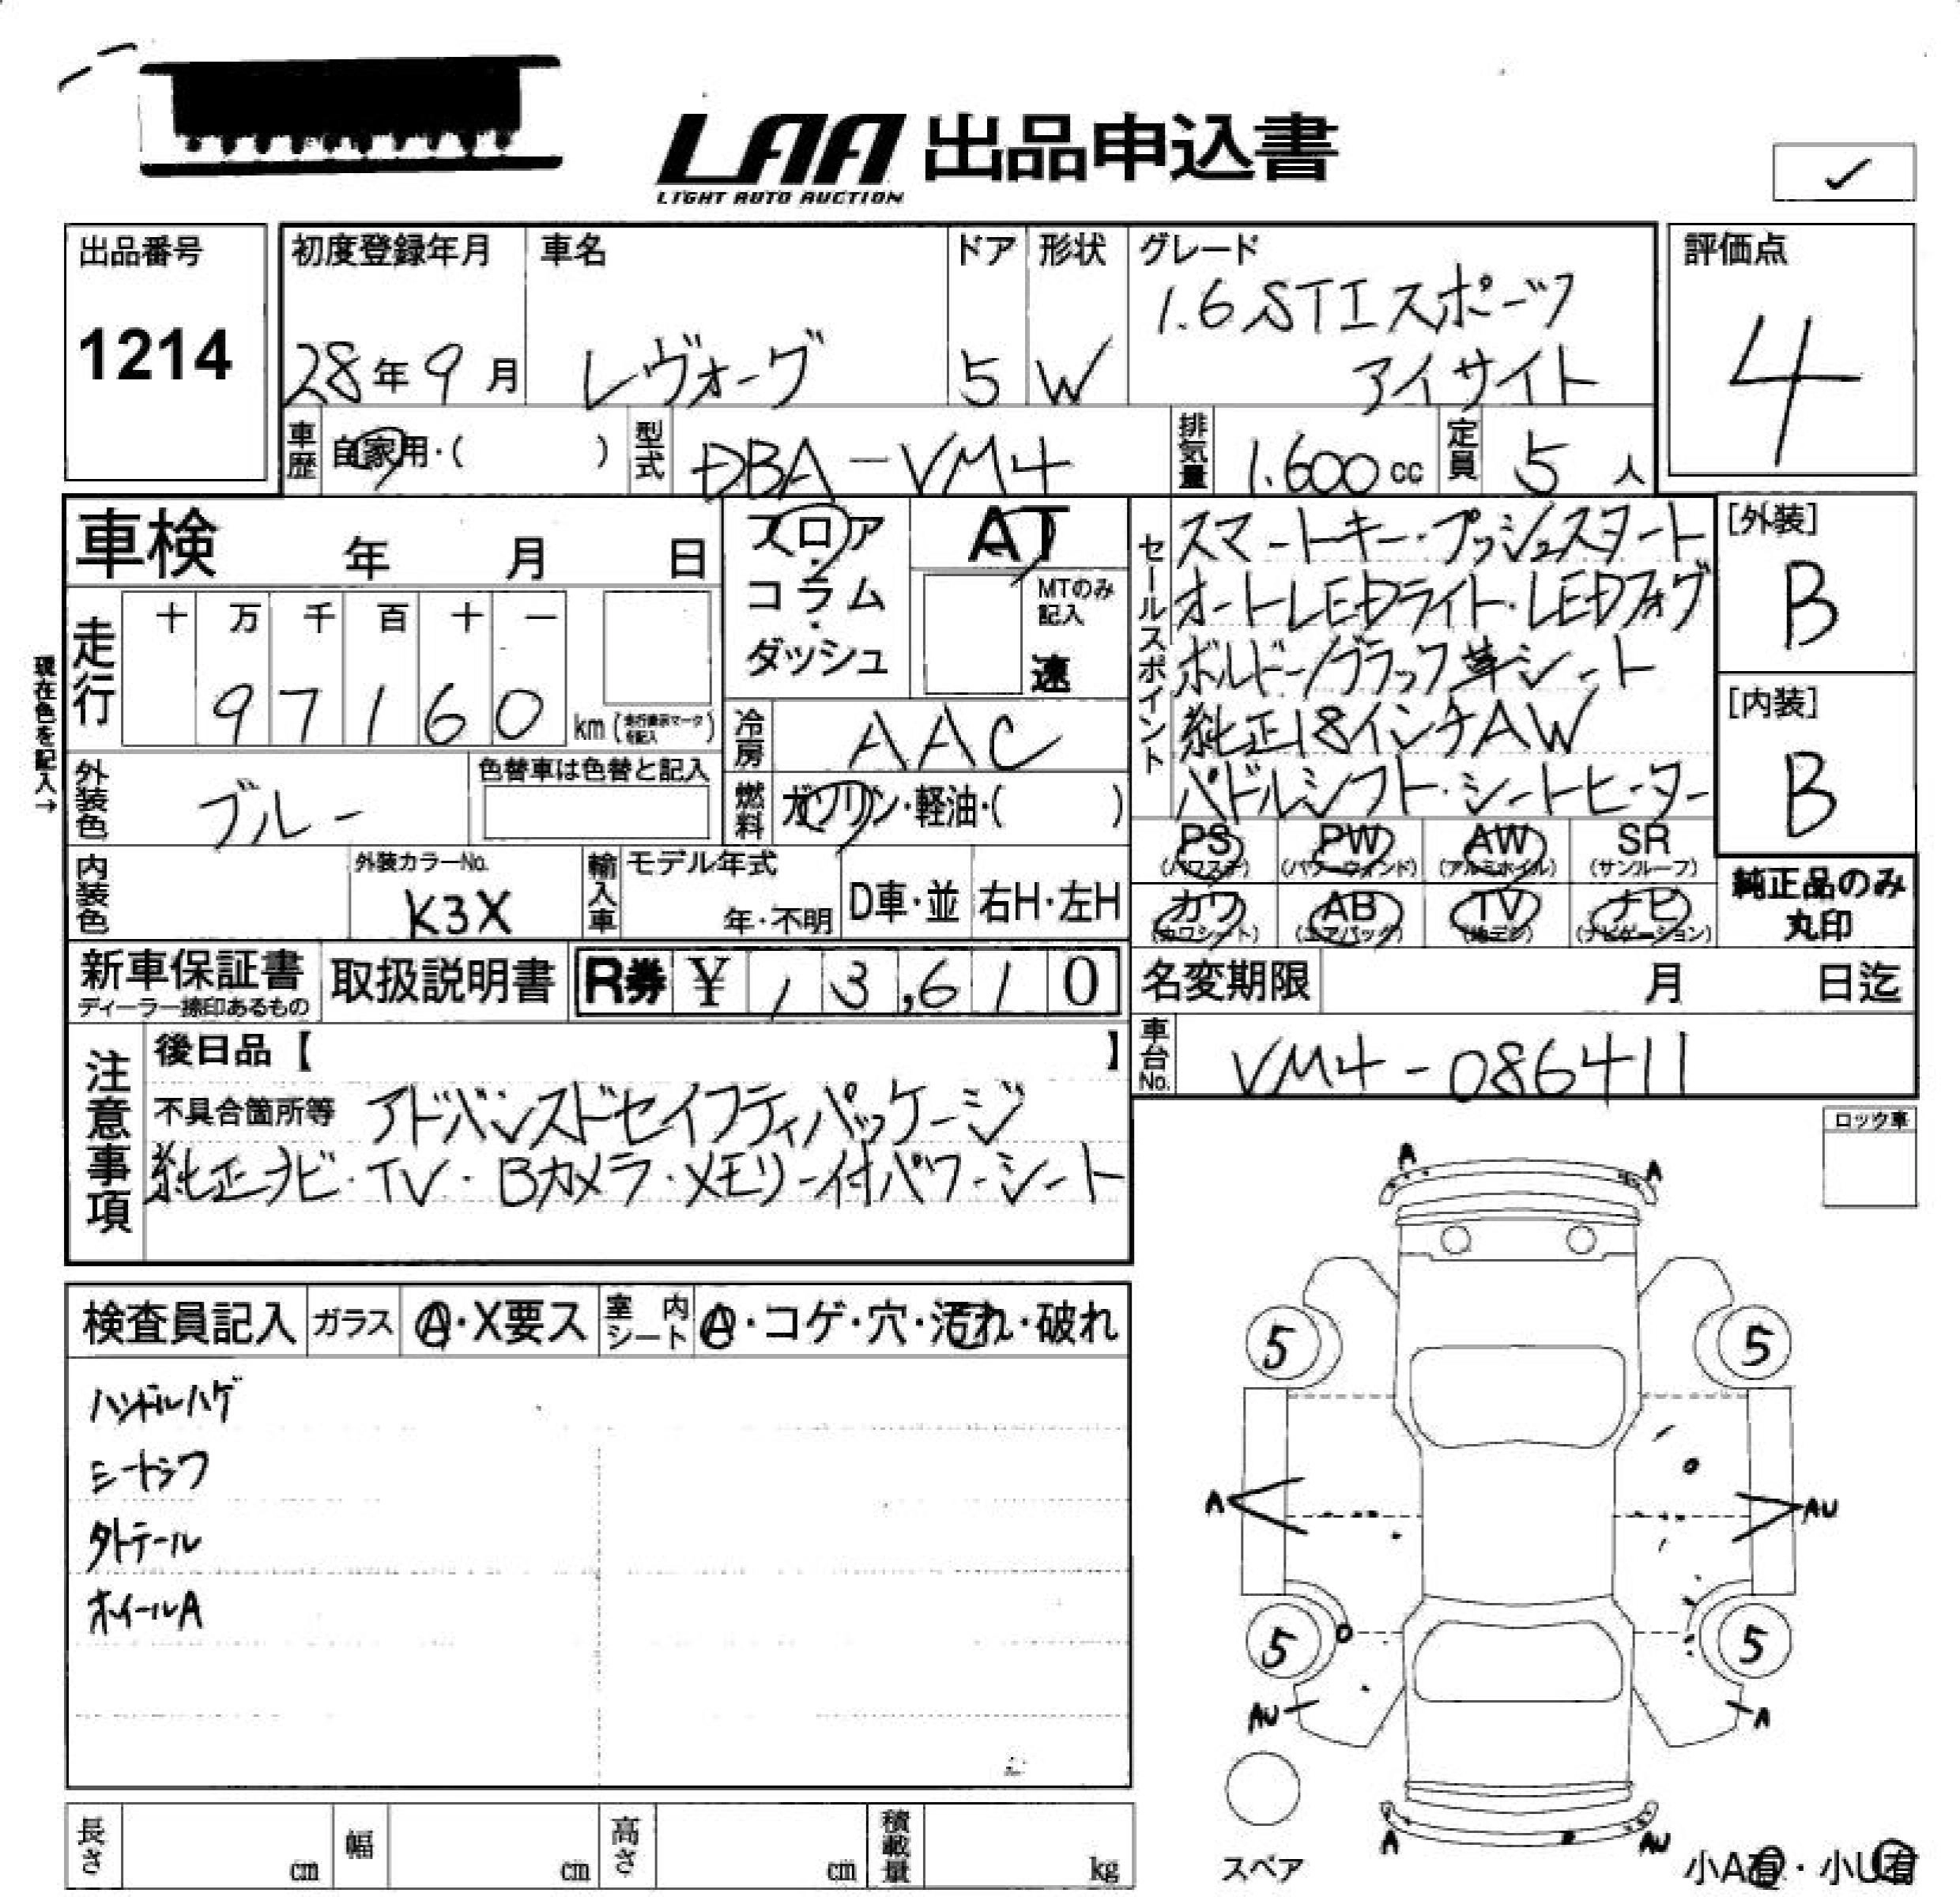 LAA 出品申込書
LIGHT AUTO AUCTION
✓
出品番号
1214
初度登録年月
28年9月
車名
レヴォーグ
ドア
5
形状
W
グレード
1.6 STI スポーツ
アイサイト
評価点
4
車歴
自家用・( )
型式
DBA-VM4
排気量
1.600 cc
定員
5 人
車検 年 月 日
フロア
・
コラム
・
ダッシュ
AT
MTのみ
記入
速
セールスポイント
スマートキー・プッシュスタート
オートLEDライト・LEDフォグ
ボルドー/ブラック革シート
純正18インチAW
パドルシフト・シートヒーター
[外装]
B
[内装]
B
現在色を記入→
走行
十 万 千 百 十 一
9 7 1 6 0 km
冷房
AAC
外装色
ブルー
色替車は色替と記入
燃料
ガソリン・軽油・( )
PS
(パワステ)
PW
(パワーウィンド)
AW
(アルミホイル)
SR
(サンルーフ)
カワ
(カワシート)
AB
(エアバッグ)
TV
(地デジ)
ナビ
(ナビゲーション)
純正品のみ
丸印
内装色
外装カラーNo.
K3X
輸入車
モデル年式
年・不明
D車・並
右H・左H
新車保証書
ディーラー捺印あるもの
取扱説明書
R券 ¥ 1 3,6 1 0
名変期限 月 日迄
車台No.
VM4-086411
注意事項
後日品【 】
不具合箇所等 アドバンスドセイフティパッケージ
純正ナビ・TV・Bカメラ・メモリー付パワーシート
ロック車
検査員記入
ガラス
A・X要ス
室内シート
A・コゲ・穴・汚れ・破れ
ハンドルハゲ
シートシワ
タトテール
ホイールA
A
A
5
5
A
AU
5
5
AU
A
A
AU
スペア
小A有・小U有
長さ cm
幅 cm
高さ cm
積載量 kg